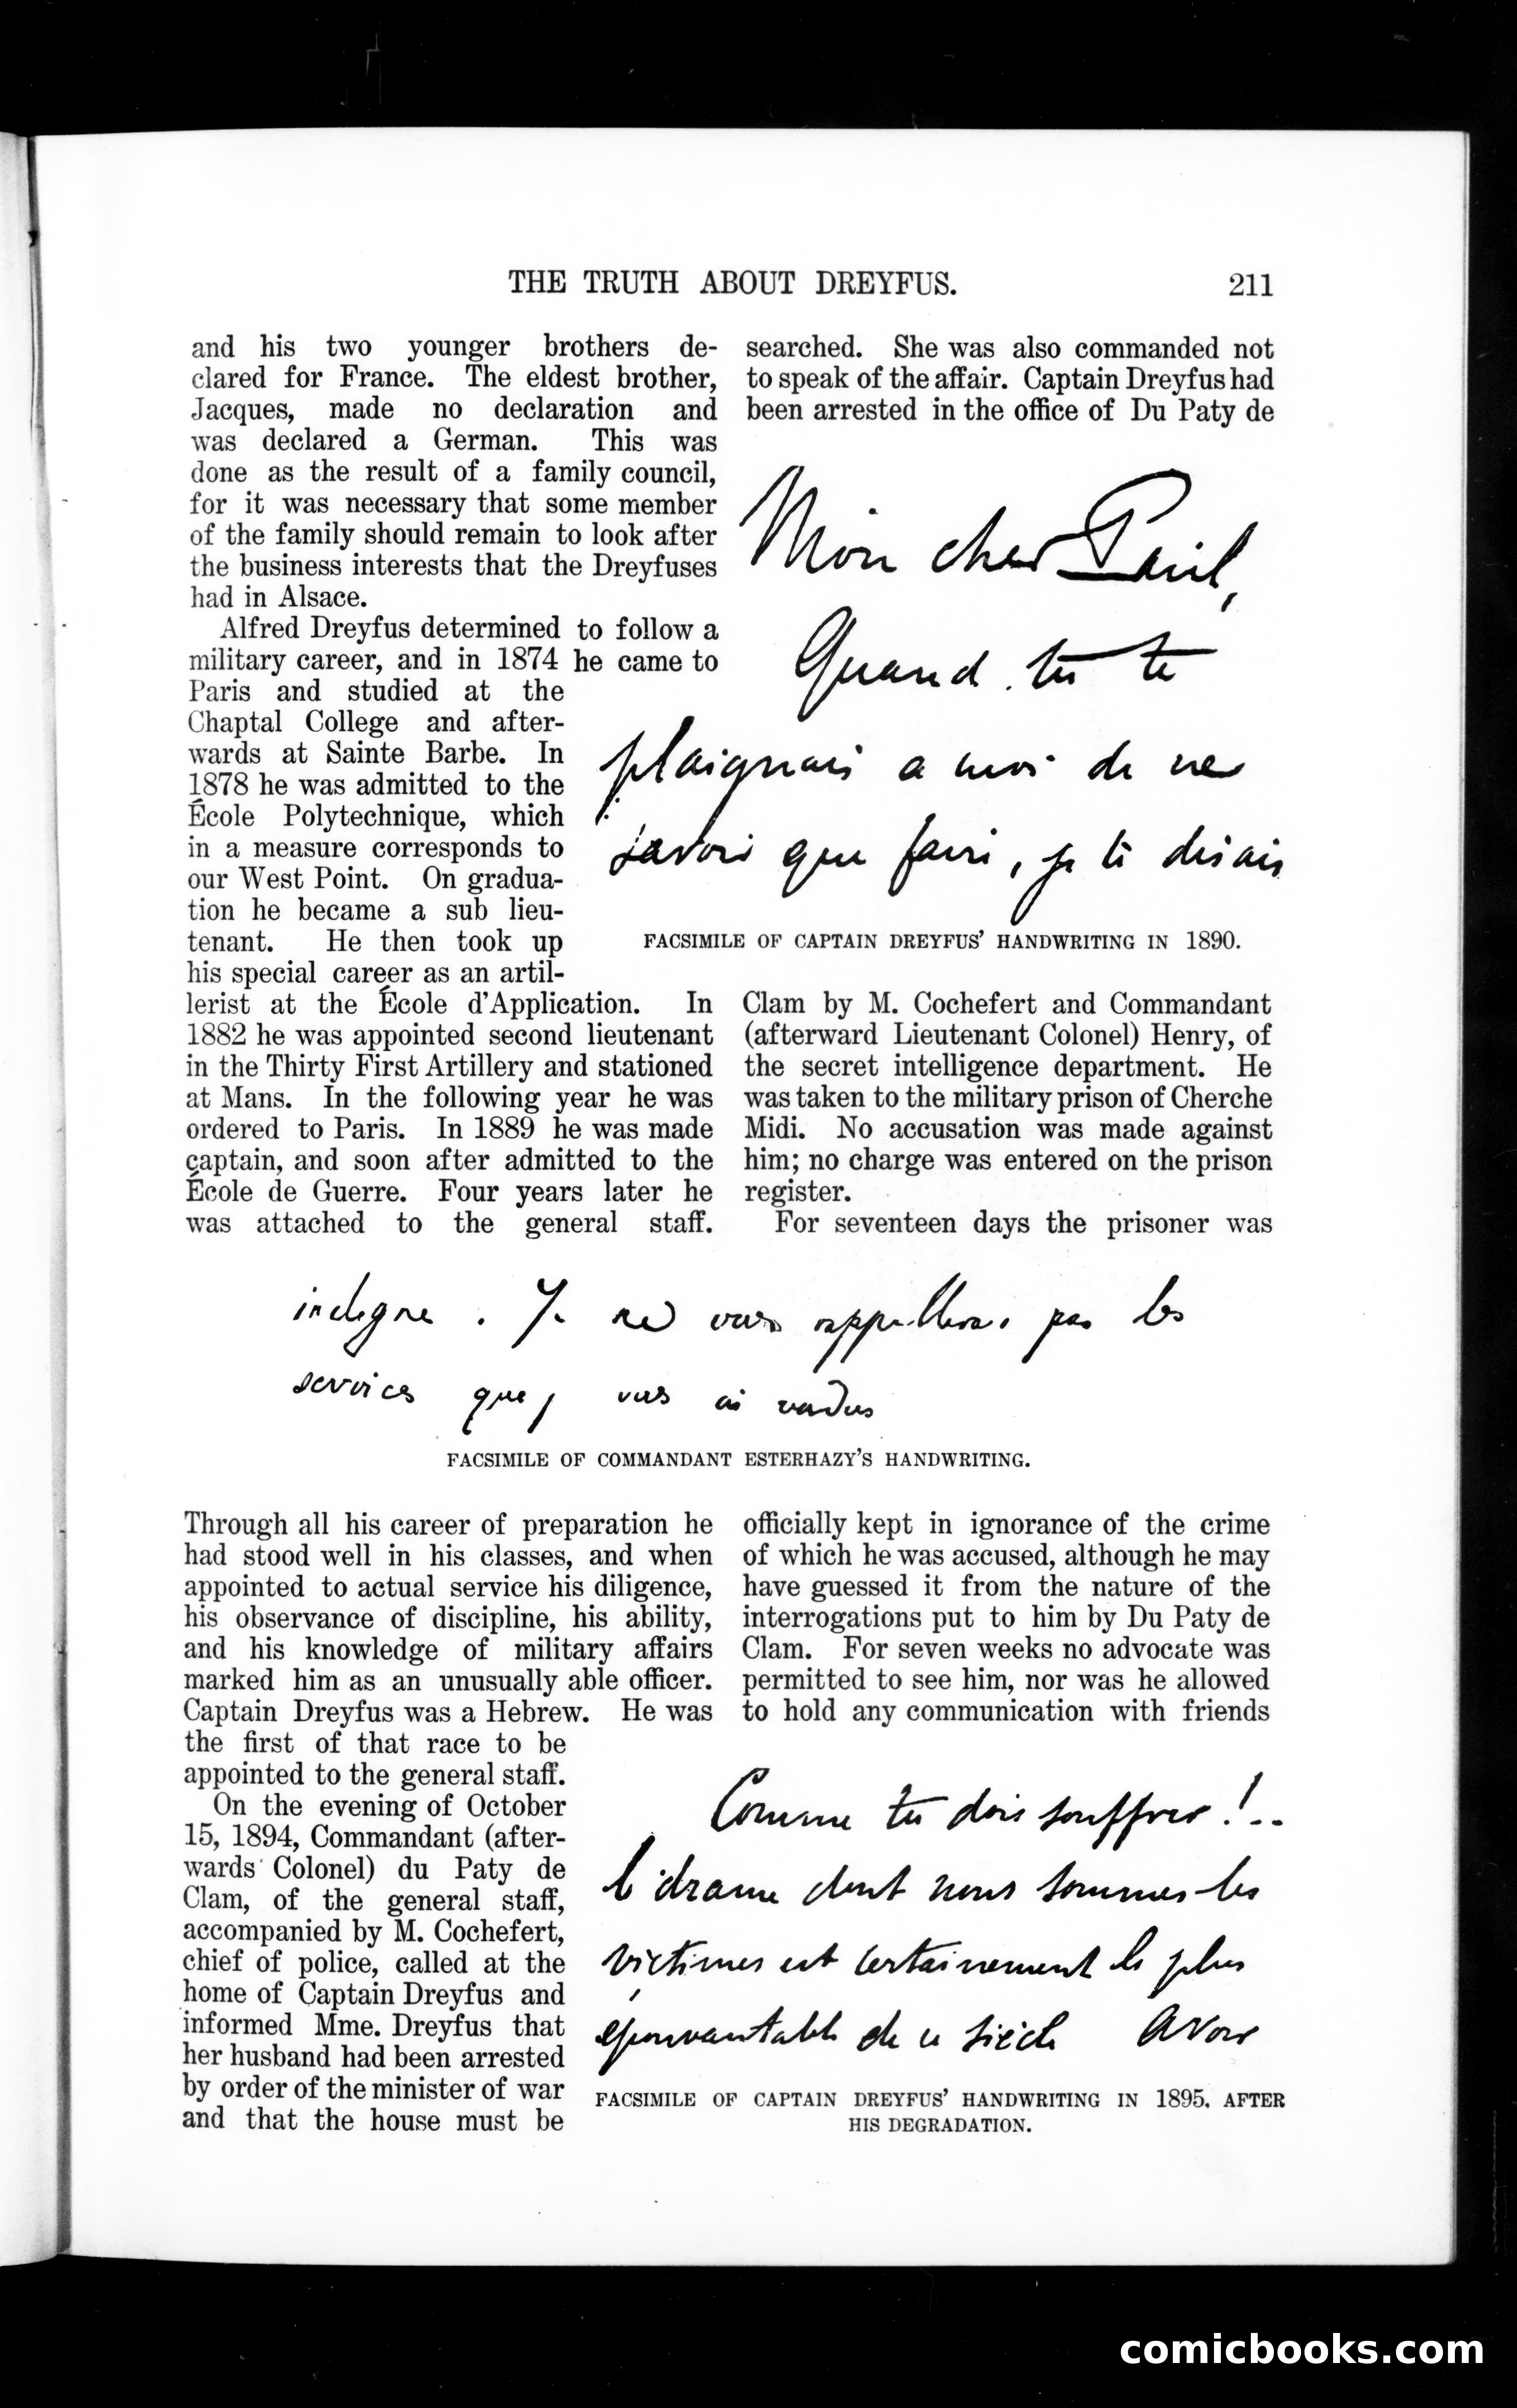 THE TRUTH ABOUT DREYFUS.
211
and his two younger brothers de-
clared for France. The eldest brother,
Jacques, made no declaration and
was declared a German. This was
done as the result of a family council,
for it was necessary that some member
of the family should remain to look after
the business interests that the Dreyfuses
had in Alsace.
Alfred Dreyfus determined to follow a
military career, and in 1874 he came to
Paris and studied at the
Chaptal College and after-
wards at Sainte Barbe. In
1878 he was admitted to the
École Polytechnique, which
in a measure corresponds to
our West Point. On gradua-
tion he became a sub lieu-
tenant. He then took up
his special career as an artil-
lerist at the École d'Application. In
1882 he was appointed second lieutenant
in the Thirty First Artillery and stationed
at Mans. In the following year he was
ordered to Paris. In 1889 he was made
captain, and soon after admitted to the
École de Guerre. Four years later he
was attached to the general staff.
searched. She was also commanded not
to speak of the affair. Captain Dreyfus had
been arrested in the office of Du Paty de
Mon cher Paul,
Quand tu te
plaignais a moi de ne
savoir que faire, je te disais
FACSIMILE OF CAPTAIN DREYFUS' HANDWRITING IN 1890.
Clam by M. Cochefert and Commandant
(afterward Lieutenant Colonel) Henry, of
the secret intelligence department. He
was taken to the military prison of Cherche
Midi. No accusation was made against
him; no charge was entered on the prison
register.
For seventeen days the prisoner was
indigne. Je ne vous rappellerai pas les
services que j vous ai rendus
FACSIMILE OF COMMANDANT ESTERHAZY'S HANDWRITING.
Through all his career of preparation he
had stood well in his classes, and when
appointed to actual service his diligence,
his observance of discipline, his ability,
and his knowledge of military affairs
marked him as an unusually able officer.
Captain Dreyfus was a Hebrew. He was
the first of that race to be
appointed to the general staff.
On the evening of October
15, 1894, Commandant (after-
wards Colonel) du Paty de
Clam, of the general staff,
accompanied by M. Cochefert,
chief of police, called at the
home of Captain Dreyfus and
informed Mme. Dreyfus that
her husband had been arrested
by order of the minister of war
and that the house must be
officially kept in ignorance of the crime
of which he was accused, although he may
have guessed it from the nature of the
interrogations put to him by Du Paty de
Clam. For seven weeks no advocate was
permitted to see him, nor was he allowed
to hold any communication with friends
Comme tu dois souffrir !..
le drame dont nous sommes les
victimes est certainement le plus
épouvantable de ce siècle Avoir
FACSIMILE OF CAPTAIN DREYFUS' HANDWRITING IN 1895, AFTER
HIS DEGRADATION.
comicbooks.com